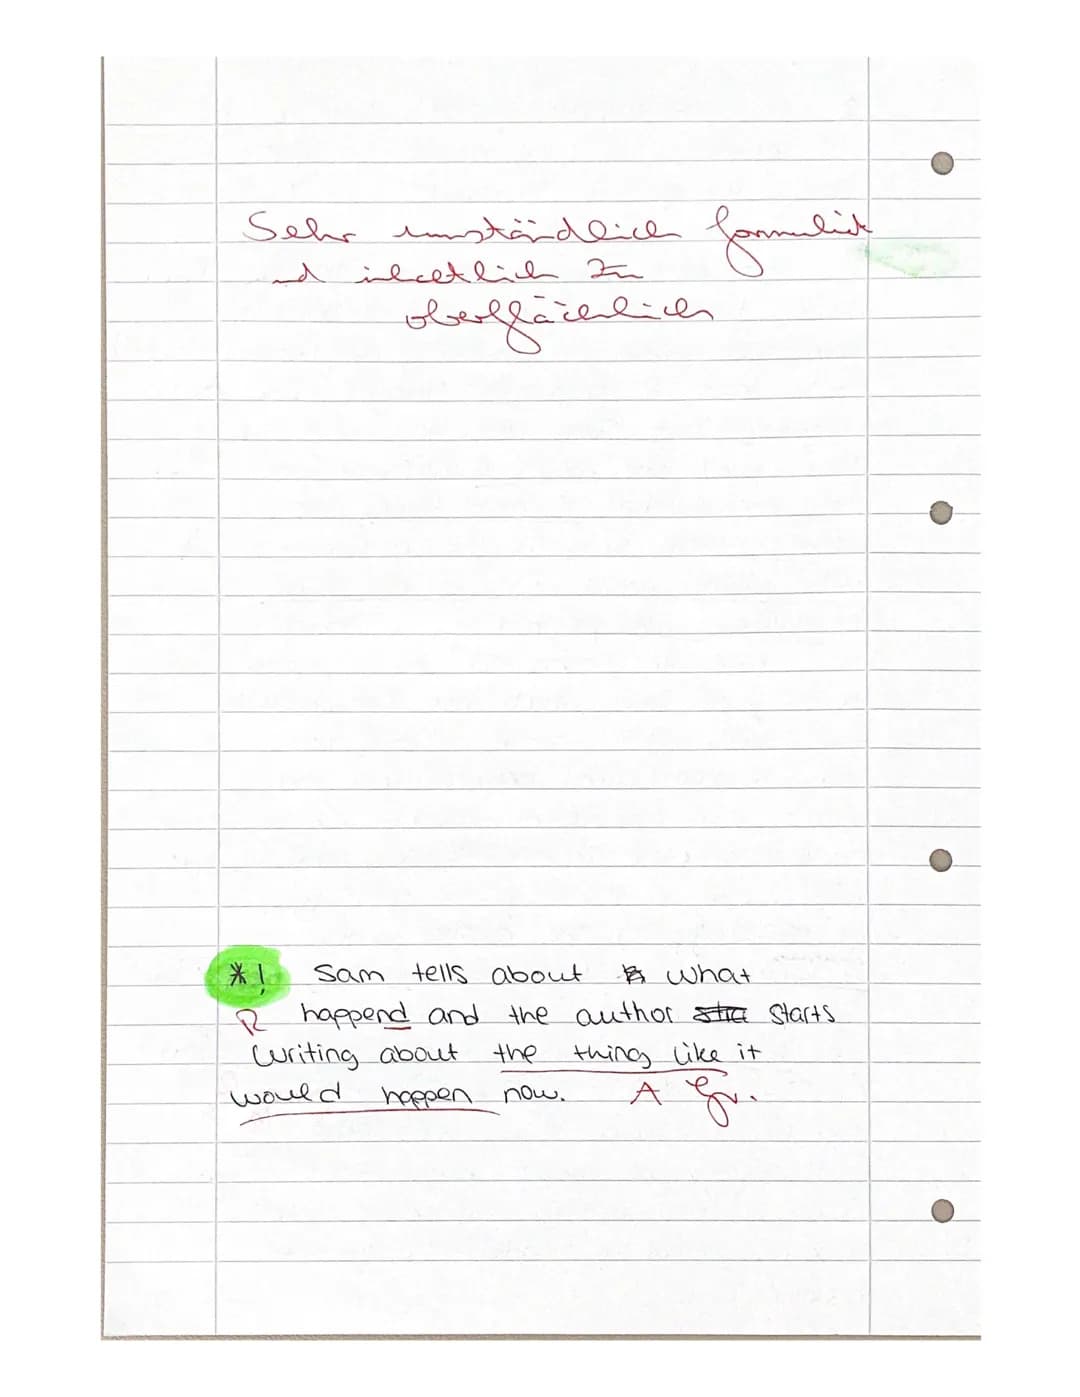 Sehr umständlich formuliert
und inhaltlich zu
oberflächlich
*! Sam tells about what
R happend and the author starts
writing about the thing like it
would happen now. A Gr.